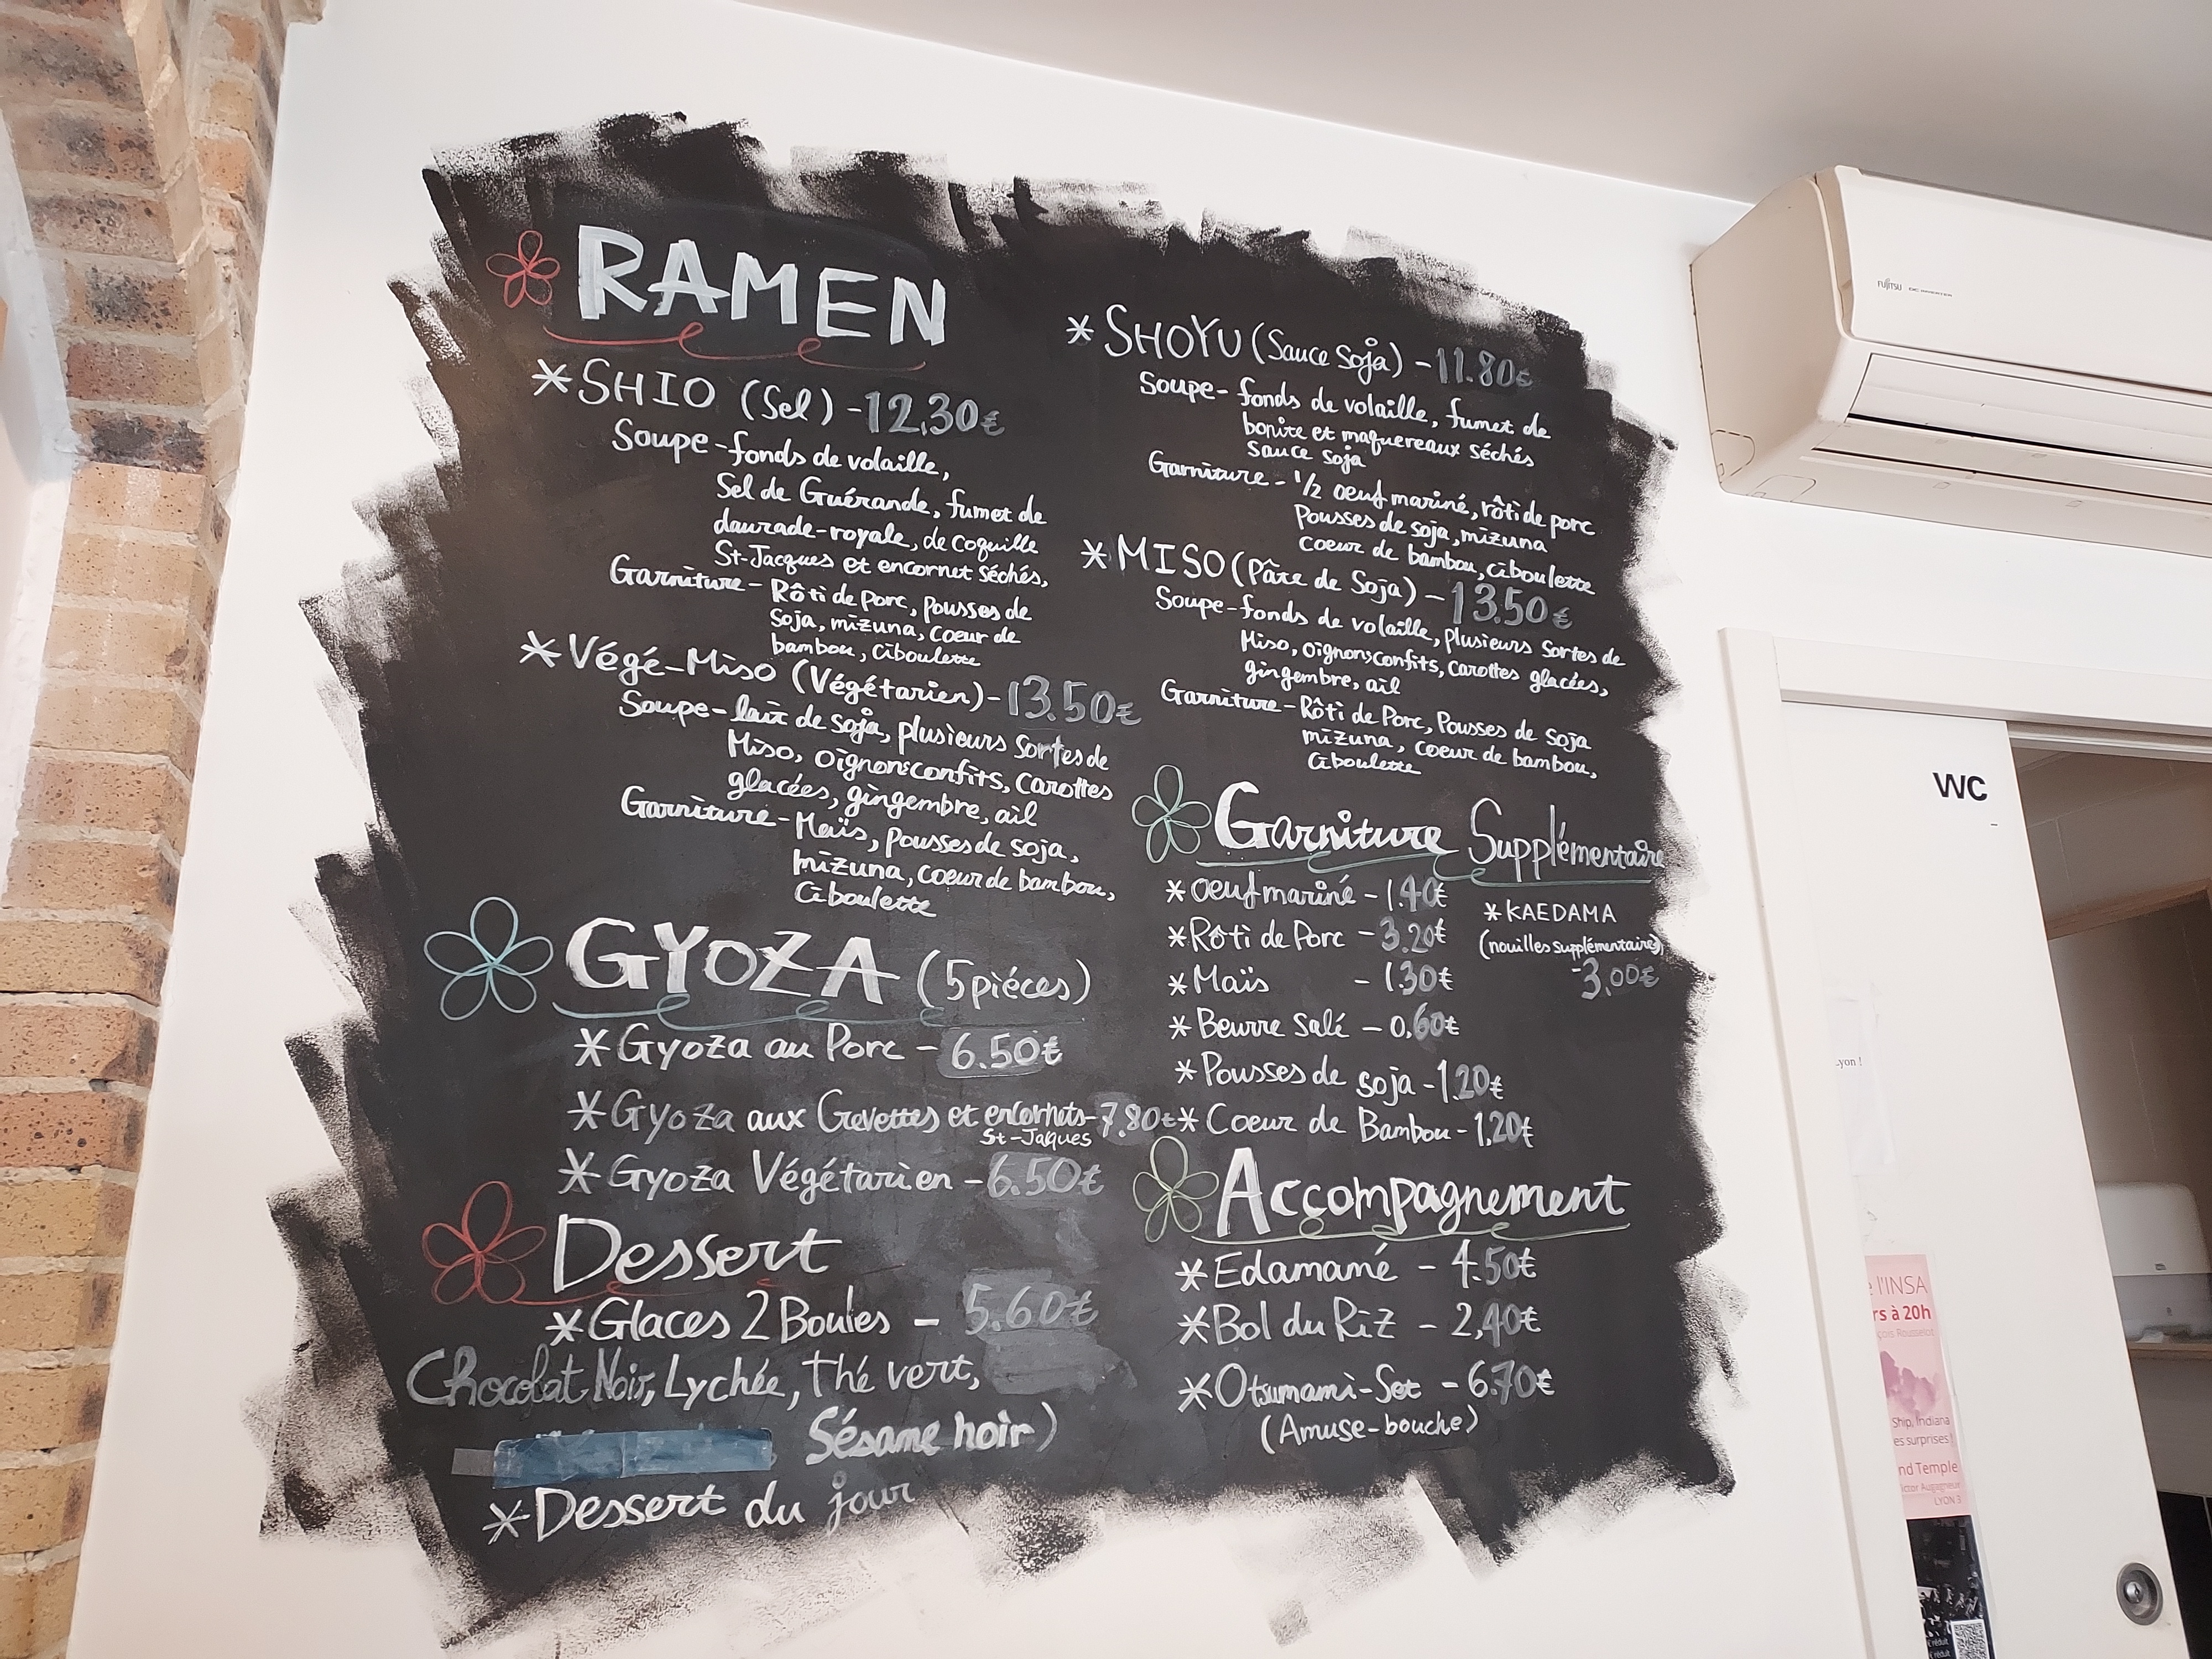 RAMEN
*SHIO (Sel) -12.30€
Soupe-fonds de volaille,
Sel de Guérande, fumet de
daurade-royale, de coquille
St-Jacques et encornet séchés,
Garniture - Rôti de porc, pousses de
soja, mizuna, coeur de
bambou, ciboulette
*Végé-Miso (Végétarien)-13.50€
Soupe-lait de soja, plusieurs sortes de
Miso, oignons confits, carottes
glacées, gingembre, ail
Garniture-Maïs, pousses de soja,
mizuna, coeur de bambou,
ciboulette
GYOZA (5 piéces)
*Gyoza au Porc - 6.50€
*Gyoza aux Crevettes et encornets-7.80€
St-Jaques
*Gyoza Végétarien -6.50€
Dessert
*Glaces 2 Boules - 5.60€
Chocolat Noir, Lychée, thé vert,
Sésame noir)
*Dessert du jour
*SHOYU (Sauce Soja) -11.80€
Soupe- fonds de volaille, fumet de
bonite et maquereaux séchés
sauce soja
Garniture - 1/2 oeuf mariné, rôti de porc
Pousses de soja, mizuna
coeur de bambou, ciboulette
*MISO (Pâte de Soja) - 13.50€
Soupe-fonds de volaille, plusieurs sortes de
Miso, oignons confits, carottes glacées,
gingembre, ail
Garniture-Rôti de Porc, Pousses de soja
mizuna, coeur de bambou,
ciboulette
Garniture Supplémentaire
*oeuf mariné - 1.40€
*Rôti de Porc - 3.20€
*Maïs - 1.30€
*Beurre salé - 0.60€
*Pousses de soja -1.20€
*Coeur de Bambou - 1,20€
*KAEDAMA
(nouilles supplémentaires)
-3,00€
Accompagnement
*Edamamé - 4.50€
*Bol du Riz - 2,40€
*Otsumami-Set - 6.70€
(Amuse-bouche)
FUJITSU
WC
Lyon !
l'INSA
rs à 20h
çois Rousselot
Ship, Indiana
es surprises !
nd Temple
ictor Augagneur
LYON 3